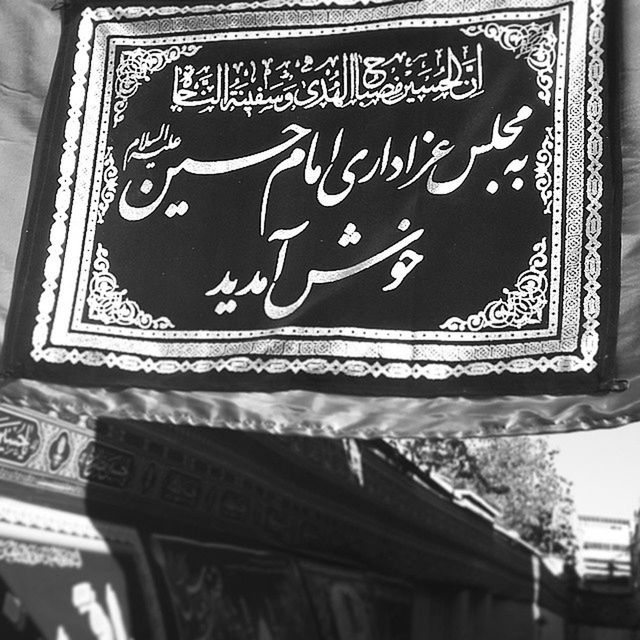 ان الحسین مصباح الهدی و سفینة النجاة
به مجلس عزاداری امام حسین علیه السلام
خوش آمدید